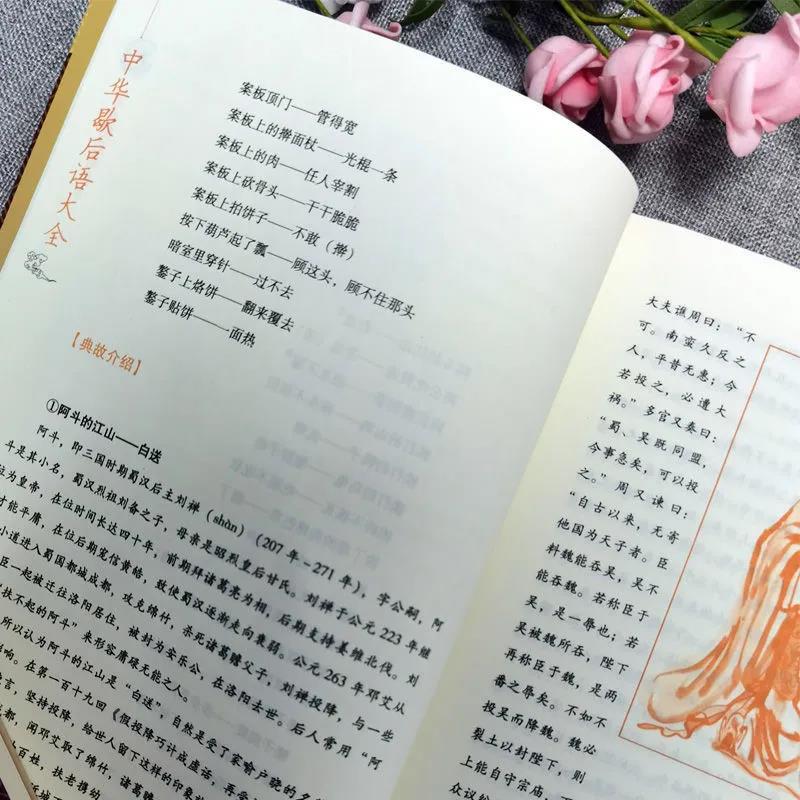 中华歇后语大全
案板顶门——管得宽
案板上的擀面杖——光棍一条
案板上的肉——任人宰割
案板上砍骨头——干干脆脆
案板上拍饼子——不敢（擀）
按下葫芦起了瓢——顾这头，顾不住那头
暗室里穿针——过不去
鏊子上烙饼——翻来覆去
鏊子贴饼——一面热
【典故介绍】
①阿斗的江山——白送
阿斗，即三国时期蜀汉后主刘禅（shàn）（207年－271年），字公嗣，阿
斗是其小名，蜀汉烈祖刘备之子，母亲是昭烈皇后甘氏。刘禅于公元223年继
位为皇帝，在位时间长达四十年，前期拜诸葛亮为相，后期支持姜维北伐。刘
才能平庸，在位后期宠信黄皓，致使蜀汉逐渐走向衰弱。公元263年邓艾从
小道进入蜀国都城成都，攻克绵竹，杀死诸葛瞻父子，刘禅投降，与一些
臣一起被迁往洛阳居住，被封为安乐公，在洛阳去世。后人常用“阿
扶不起的阿斗”来形容庸碌无能之人。
所以认为阿斗的江山是“白送”，自然是受了家喻户晓的
响。在第一百十九回《假投降巧计成虚话，再受
言，坚持投降，给世人留下这样的印象
都，闻邓艾取了绵竹，诸葛瞻
百姓，扶老携幼
大夫谯周曰：“不
可。南蛮久反之
人，平昔无惠；今
若投之，必遭大
祸。”多官又奏曰：
“蜀、吴既同盟，
今事急矣，可以投
之。”周又谏曰：
“自古以来，无寄
他国为天子者。臣
料魏能吞吴，吴不
能吞魏。若称臣于
吴，是一辱也；若
吴被魏所吞，陛下
再称臣于魏，是两
番之辱矣。不如不
投吴而降魏。魏必
裂土以封陛下，则
上能自守宗庙，
众议